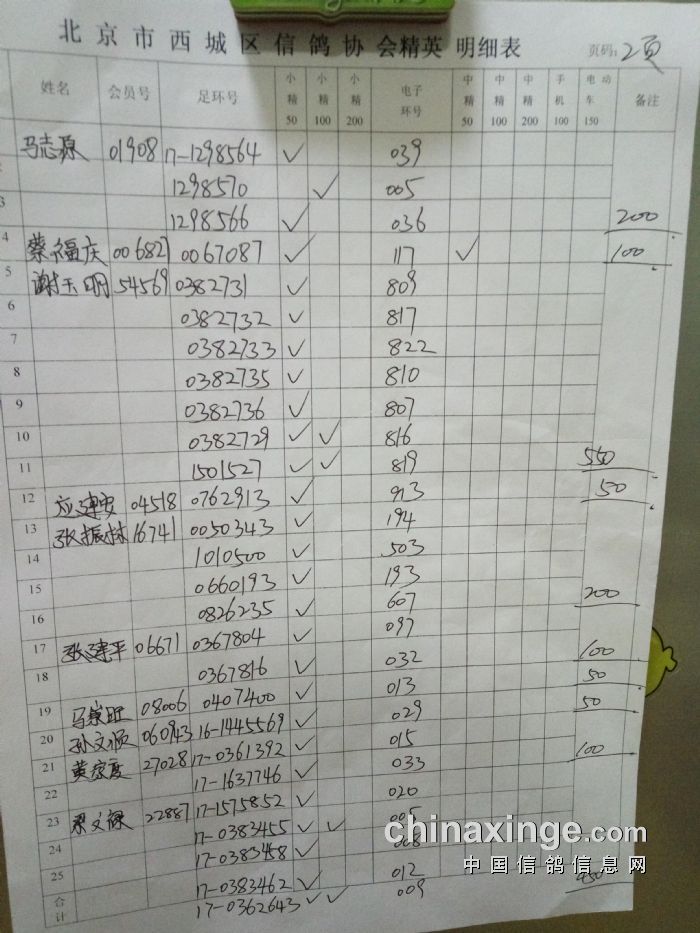 北京市西城区信鸽协会精英 明细表 页码：2页
姓名 会员号 足环号 小精50 小精100 小精200 电子环号 中精50 中精100 中精200 手机100 电动车150 备注
马志源 01908 17-1298564 ✓ 039
2 1298570 ✓ 005
3 1298566 ✓ 036 200
4 蔡福庆 006827 0067087 ✓ 117 ✓ 100
5 谢玉明 54569 0382731 ✓ 809
6 0382732 ✓ 817
7 0382733 ✓ 822
8 0382735 ✓ 810
9 0382736 ✓ 807
10 0382729 ✓ ✓ 816
11 1501527 ✓ ✓ 819 550
12 应建安 04518 0762913 ✓ 913 50
13 张振林 16741 0050343 ✓ 194
14 1010500 ✓ 503
15 0660193 ✓ 193
16 0826235 ✓ 607 200
17 张建平 06671 0367804 ✓ 097
18 0367816 ✓ 032 100
19 马 08006 0407400 ✓ 013 50
20 孙文顺 060943 16-1445569 ✓ 029 50
21 黄 27028 17-0361392 ✓ 015
22 17-1637746 ✓ 033 100
23 梁文禄 22887 17-1575852 ✓ 020
24 17-0383455 ✓ ✓ 005
17-0383458 ✓ 008
25 17-0383462 ✓ 012
合计 17-0362643 ✓ ✓ 009 450
chinaxinge.com
中国信鸽信息网